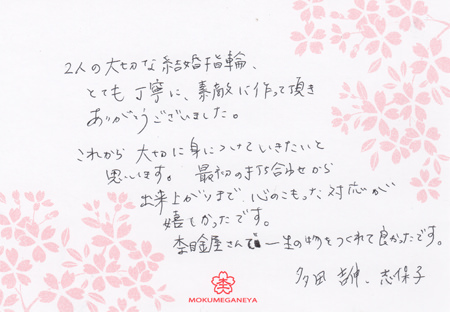 2人の大切な結婚指輪、
とても丁寧に、素敵に作って頂き
ありがとうございました。
これから大切に身につけていきたいと
思います。最初の打ち合わせから
出来上がりまで、心のこもった対応が
嬉しかったです。
杢目金屋さんで一生の物をつくれて良かったです。
多田 吉伸、志保子
MOKUMEGANEYA